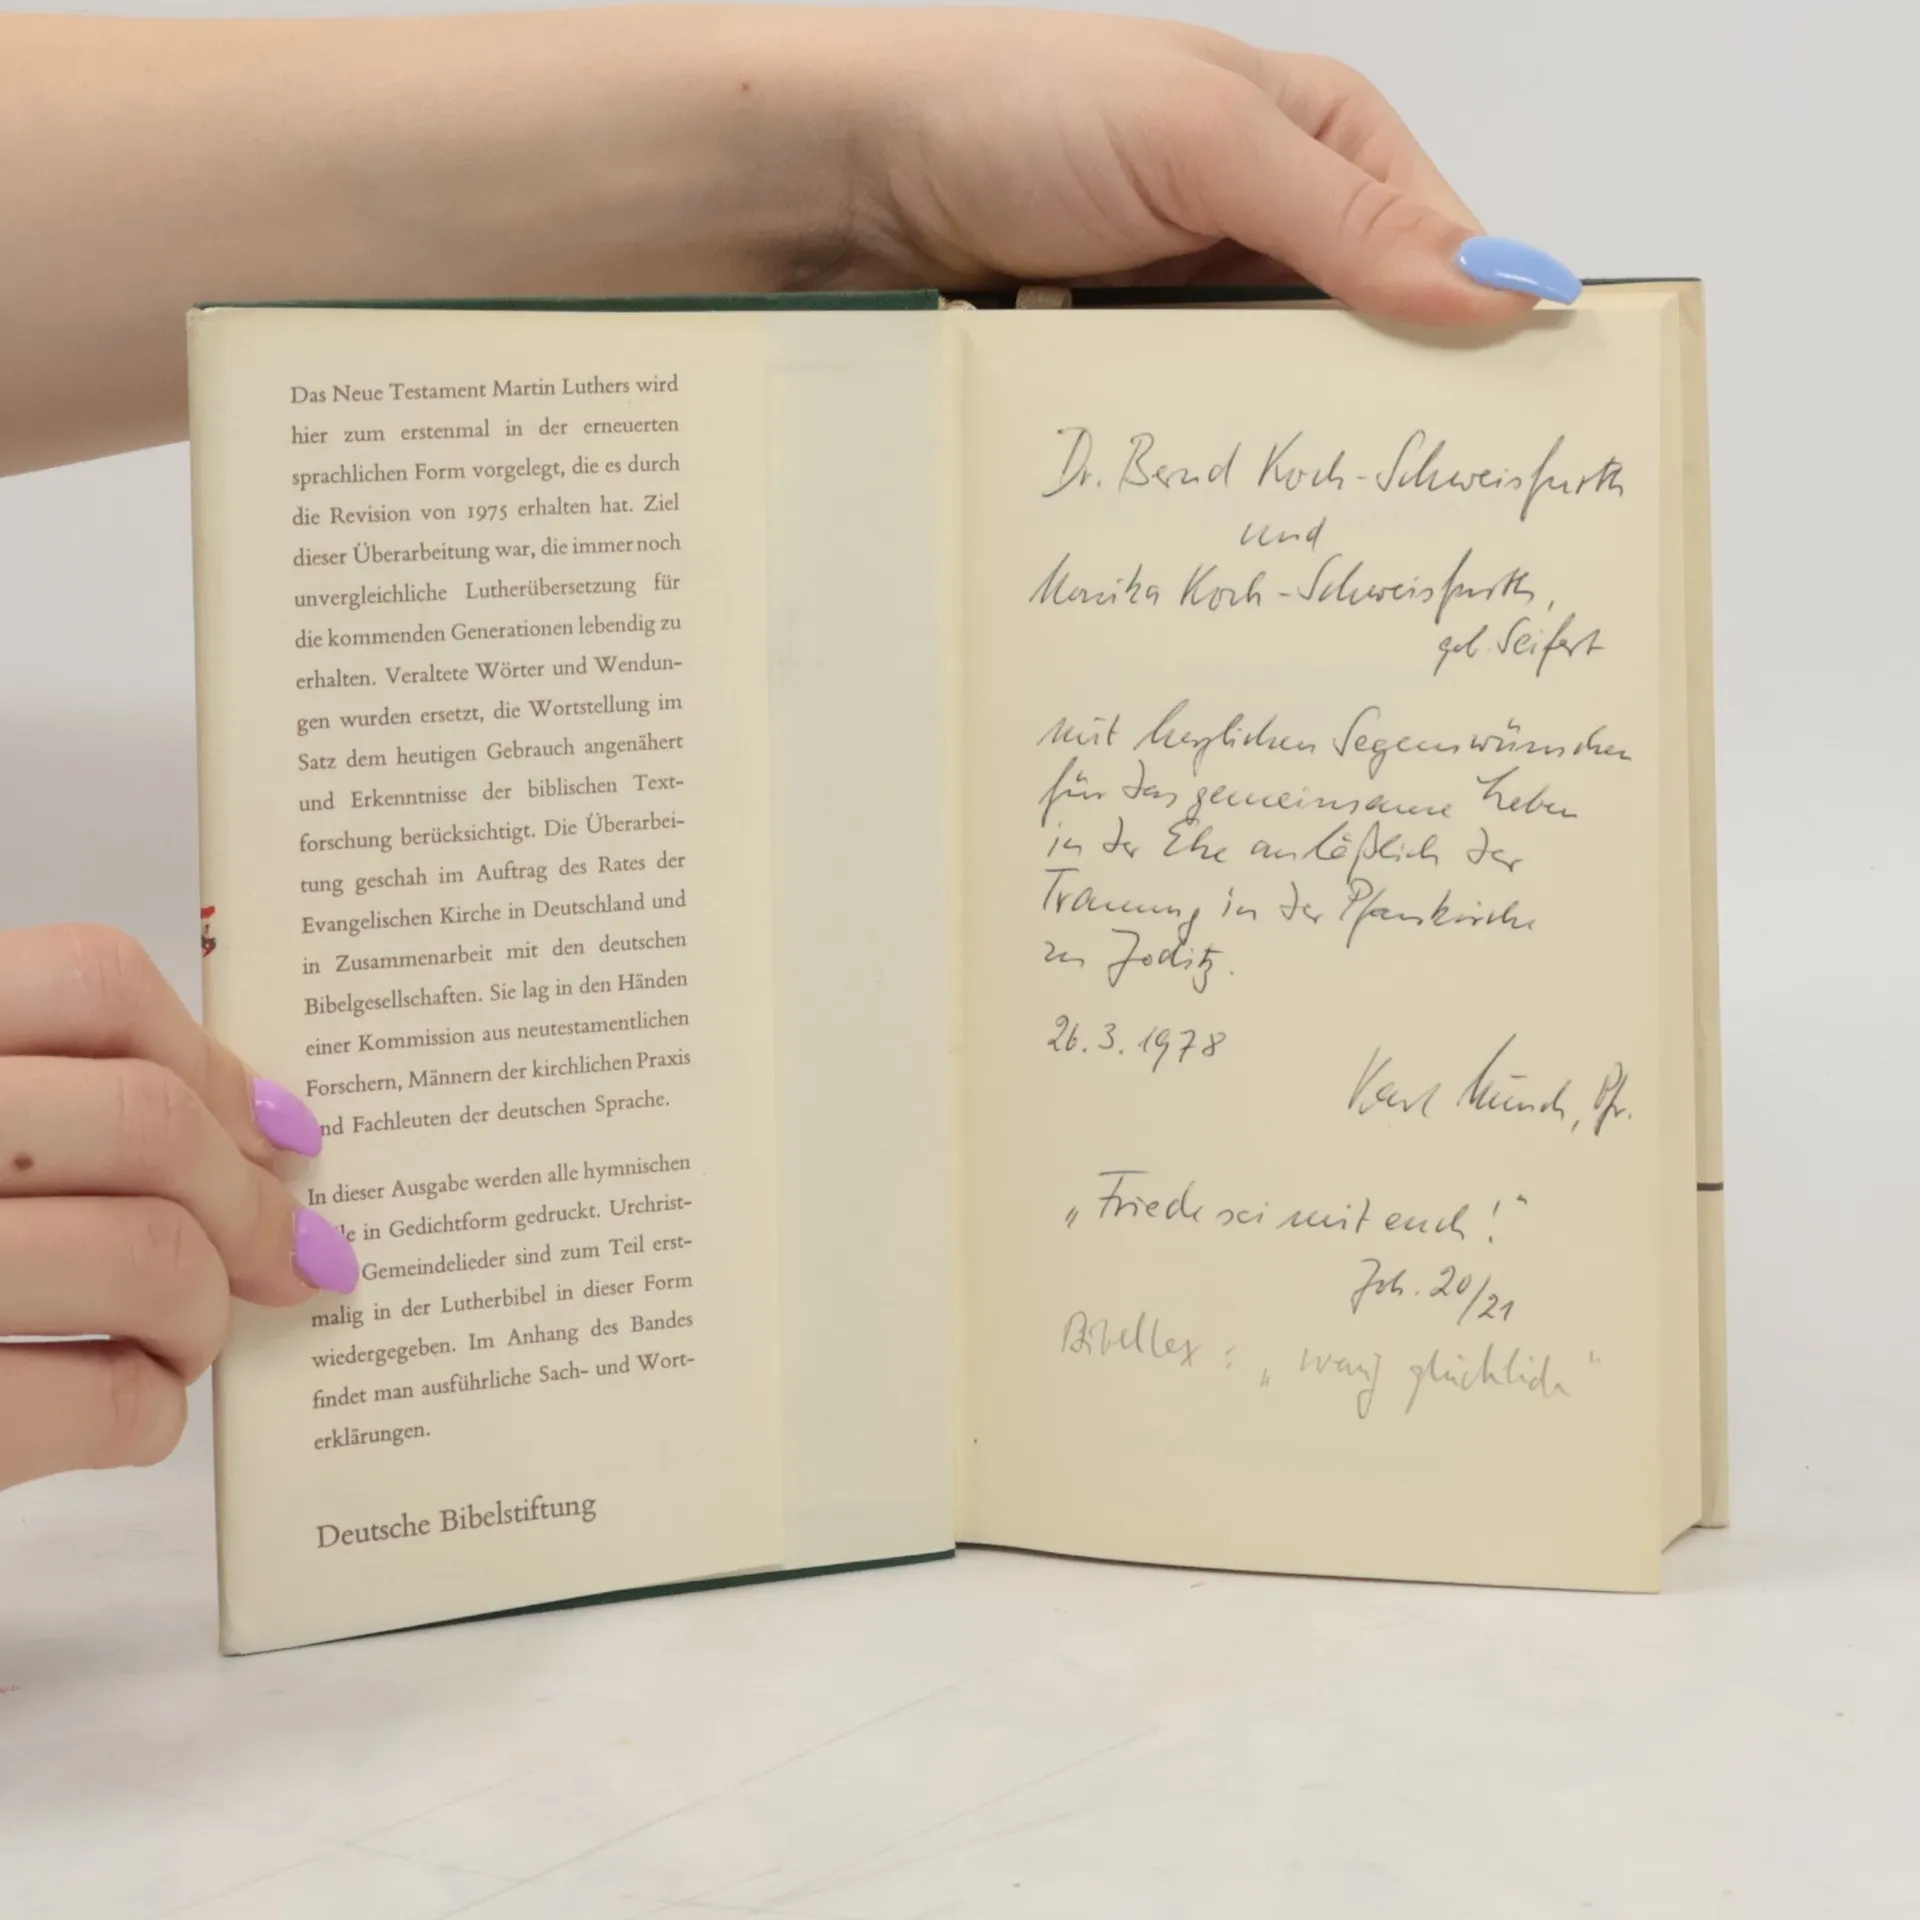 Das Neue Testament Martin Luthers wird
hier zum erstenmal in der erneuerten
sprachlichen Form vorgelegt, die es durch
die Revision von 1975 erhalten hat. Ziel
dieser Überarbeitung war, die immer noch
unvergleichliche Lutherübersetzung für
die kommenden Generationen lebendig zu
erhalten. Veraltete Wörter und Wendun-
gen wurden ersetzt, die Wortstellung im
Satz dem heutigen Gebrauch angenähert
und Erkenntnisse der biblischen Text-
forschung berücksichtigt. Die Überarbei-
tung geschah im Auftrag des Rates der
Evangelischen Kirche in Deutschland und
in Zusammenarbeit mit den deutschen
Bibelgesellschaften. Sie lag in den Händen
einer Kommission aus neutestamentlichen
Forschern, Männern der kirchlichen Praxis
nd Fachleuten der deutschen Sprache.
In dieser Ausgabe werden alle hymnischen
le in Gedichtform gedruckt. Urchrist-
Gemeindelieder sind zum Teil erst-
malig in der Lutherbibel in dieser Form
wiedergegeben. Im Anhang des Bandes
findet man ausführliche Sach- und Wort-
erklärungen.
Deutsche Bibelstiftung
Dr. Bernd Koch-Schweisfurth
und
Monika Koch-Schweisfurth,
geb. Seifert
mit herzlichen Segenswünschen
für das gemeinsame Leben
in der Ehe anläßlich der
Trauung in der Pfarrkirche
zu Joditz.
26.3.1978
Karl Münch, Pfr.
„Friede sei mit euch!"
Joh. 20/21
Bibellex : „ glücklich"